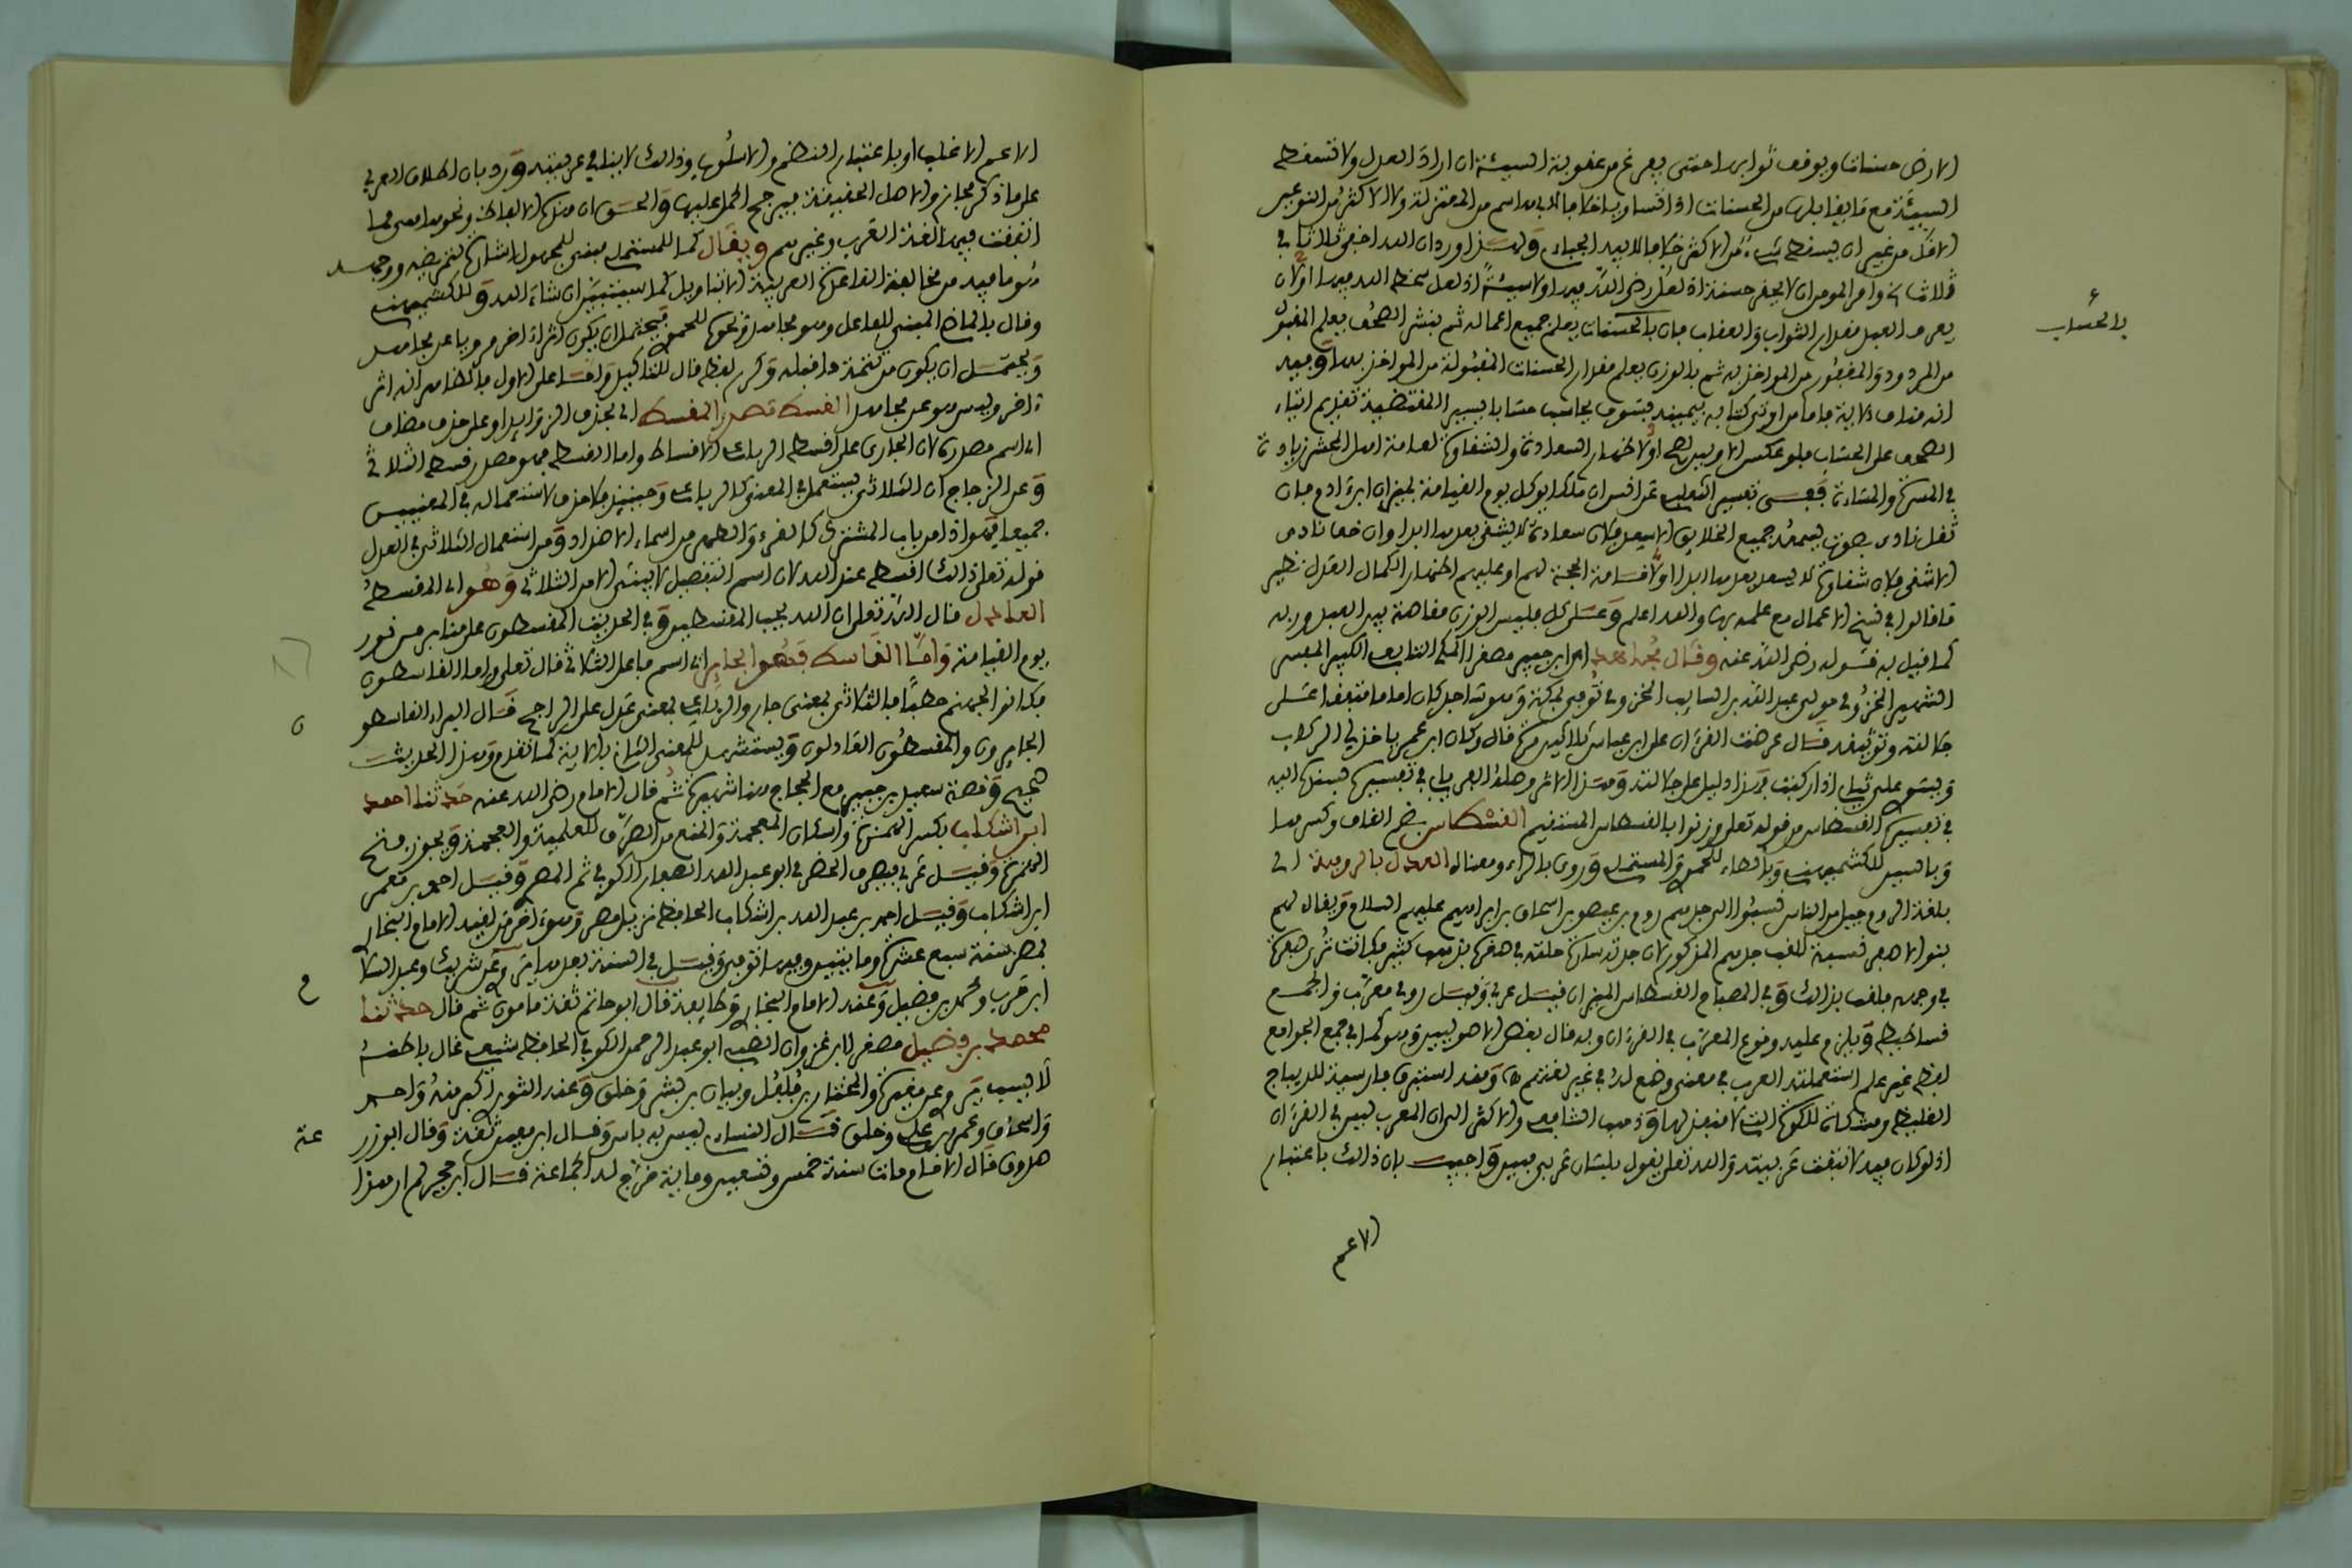 الارض حسنات ويوقف ثوابها حتى يفرغ من عقوبة السيئة ان اراد العدل ولا تسقط
السيئة مع ما يقابلها من الحسنات اذا تساويا خلافا لابي هاشم من المعتزلة ولا الاكثر من النوعين
الاقل من غير ان يسقط شيء من الاكثر خلافا لابيه الجباءي
يعرف العبد مقدار الثواب والعقاب فان بالحساب يعلم جميع اعماله ثم بنشر الصحف يعلم المقبول
بالحساب
من المردود والمغفور من المواخذ به ثم بالوزن يعلم مقدار الحسنات المقبولة من المواخذ بها وفيه
انه مناف لاية فاما من اوتي كتابه بيمينه فسوف يحاسب حسابا يسيرا المقتضية تقديم ايتاء
الصحف على الحساب فلو عكس اولا ظهار السعادة والشقاوة لعامة اهل المحشر زيادة
في المسرة والمساءة ففي تفسير الثعلبي عن انس ان ملكا يوكل يوم القيامة بميزان ابن ادم فان
ثقل نادى بصوت يسمعه جميع الخلايق الا سعد فلان سعادة لا يشقى بعدها ابدا وان خف نادى
الا شقي فلان شقاوة لا يسعد بعدها ابدا او لاقامة الحجة لهم او عليهم اظهار الكمال العدل نظير
ما قالوا في نسخ الاعمال مع علمه بها والله اعلم وعلى كل فليس الوزن مفاهمة بين العبد وربه
كما قيل به قوله رضي الله عنه وقال مجاهد اي ابن جبير مصغرا المكي التابعي الكبير المفسر
الشهير المخزومي مولى عبد الله بن السايب المخزومي توفي بمكة وهو ساجد كان اماما متفقا على
جلالته وتوثيقه قال عرضت القرءان على ابن عباس ثلاثين مرة قال وكان ابن عمر ياخذ لي الركاب
ويسوي علي ثيابي اذا ركبت وهذا دليل على جلالته وهذا الاثر وصله الفريابي في تفسيره بسنده اليه
في تفسير القسطاس من قوله تعلى وزنوا بالقسطاس المستقيم القسطاس بضم القاف وكسرها
وبالسين للكشميهني وبالطاء للحموي والمستملي وروي بالراء ومعناه العدل بالرومية اي
بلغة الروم جيل من الناس نسبوا الى جدهم روم بن عيصو بن اسحاق بن ابراهيم عليهم السلام ويقال لهم
بنو الاصفر نسبة للقب جدهم المذكور لان جدته سارة حلته في صغره بذهب كثير فكانت تُرى صفرة
في وجهه فلقب بذالك وفي المصباح القسطاس الميزان قيل عربي وقيل رومي معرب والجمع
قساطيط ويلزم عليه وقوع المعرب في القرءان وبه قال بعض الاصوليين وهو كما في جمع الجوامع
لفظ غير علم استعملته العرب في معنى وضع له في غير لغتهم ومنه استبرق فارسية للديباج
الغليظ ومشكاة للكوة التي لا منفذ لها وذهب الشافعي والاكثر الى ان المعرب ليس في القرءان
اذ لو كان فيه لانتفت عربيته والله تعلى يقول بلسان عربي مبين واجيب بان ذالك باعتبار
الاعم
الاعم الاغلب او باعتبار النظم والاسلوب وذالك لا ينافي عربيته ورد بان اطلاق العربي
على ما ذكر مجاز والاصل الحقيقة فيرجح الحمل عليها والحق ان هذه الالفاظ ونحوها مما
اتفقت فيه لغة العرب وغيرهم ويقال كما للمستملي مبني للمجهول اشارة لتمريضه ووجهه
هو ما فيه من مخالفة القاعدة العربية الا بتاويل كما سيتبين ان شاء الله وللكشميهني
وقال بالماضي المبني للفاعل وهو مجاهد ونحوه للحموي فيحتمل ان يكون اثرا اخر مرويا عن مجاهد
ويحتمل ان يكون من تتمة ما قبله وكرر لفظ قال للتاكيد واما على الاول فالظاهر انه اثر
ءاخر وليس هو عن مجاهد القسط مصدر المقسط اي بحذف الزوايد او على حذف مضاف
اي اسم مصدره لان الجاري على اقسط الرباعي الاقساط واما القسط فهو مصدر قسط الثلاثي
وعن الزجاج ان الثلاثي يستعمل في المعنى كالرباعي وحينئذ فلا حذف لاستعماله في المعنيين
جميعا فهو اذا من باب المشترك كالقرء والظهر من اسماء الاضداد ومن استعمال الثلاثي في العدل
قوله تعلى ذالكم اقسط عند الله لان اسم التفضيل لا يبنى الا من الثلاثي وهو اي المقسط
العادل قال الله تعلى ان الله يحب المقسطين وفي الحديث المقسطون على منابر من نور
يوم القيامة واما القاسط فهو الجاير اي اسم فاعل الثلاثي قال تعلى واما القاسطون
فكانوا لجهنم حطبا فالثلاثي بمعنى جار والرباعي بمعنى عدل على الراجح قال الفراء القاسطون
الجايرون والمقسطون العادلون ويستشهد للمعنى الثاني بالاية كما تقدم وهذا الحديث
صحيح وقصة سعيد بن جبير مع الحجاج هنا شهيرة ثم قال الامام رضي الله عنه حدثنا احمد
ابن اشكاب بكسر الهمزة واسكان المعجمة والمنع من الصرف للعلمية والعجمة ويجوز فتح
الهمزة وقيل عربي فيصرف الحضرمي ابو عبد الله الصفار الكوفي ثم المصري وقيل احمد بن معمر
ابن اشكاب وقيل احمد بن عبد الله بن اشكاب الحافظ نزيل مصر وهو ءاخر من لقيه الامام البخاري
بمصر سنة سبع عشرة وماينين وفيها توفي وقيل في السنة بعدها روى عن شريك وعبد السلام
ابن حرب ومحمد بن فضيل وعنه الامام البخاري وطايفة قال ابو حاتم ثقة مامون ثم قال حدثنا
محمد بن فضيل مصغر ابن غزوان الضبي ابو عبد الرحمن الكوفي الحافظ شيعي غال باطنه
لا يسب روى عن مغيرة والمختار بن فلفل وبيان بن بشر وخلق وعنه الثوري اكبر منه واحمد
واسحاق وعمرو بن علي وخلق قال النساءي ليس به باس وقال ابن معين ثقة وقال ابو زرعة
صدوق قال الامام مات سنة خمس وتسعين وماية خرج له الجماعة قال ابن حجر لم ار هذا